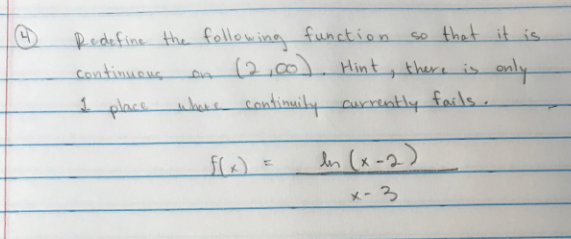 ④ Redefine the following function so that it is
continuous on (2,∞). Hint, there is only
1 place where continuity currently fails.
f(x) = ln(x-2)
x-3